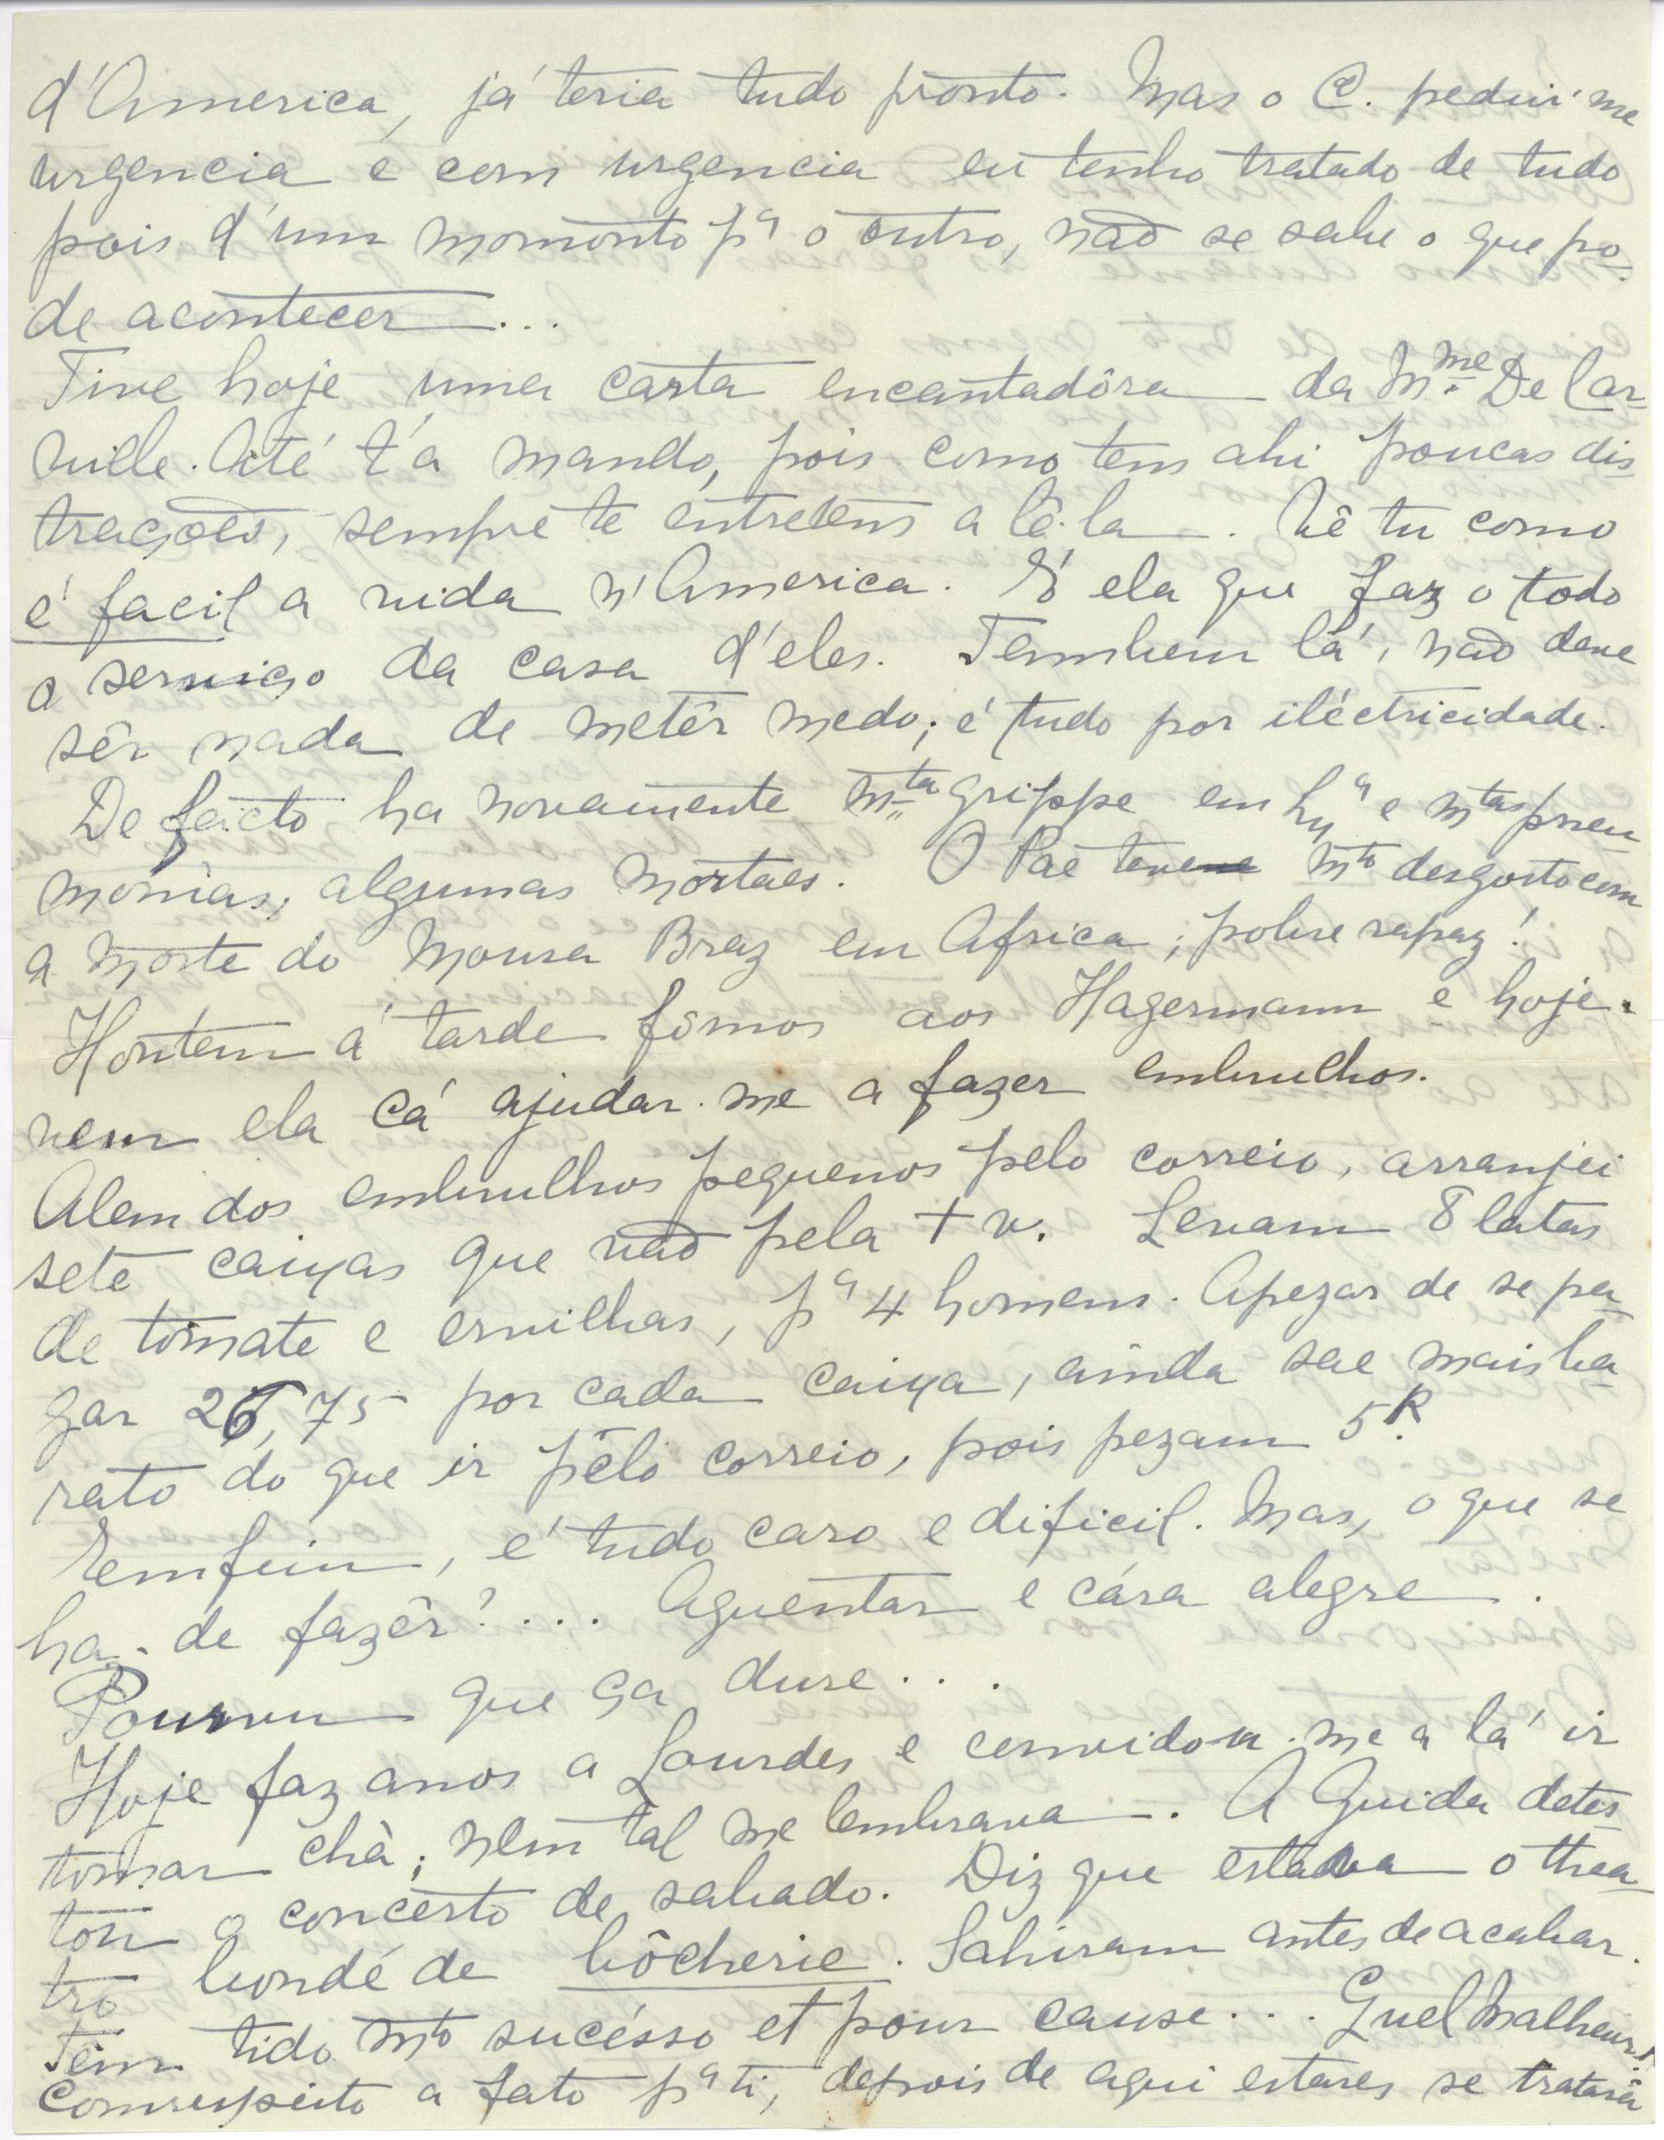 d'America, já teria tudo pronto. Mas o C. pediu-me
urgencia e com urgencia eu tenho tratado de tudo
pois d'um momonto pª o outro, não se sabe o que po-
de acontecer...
Tive hoje uma carta encantadôra da Mme De Car-
ville. Até t'a mando, pois como tens ahi poucas dis-
trações, sempre te entretens a lê-la. Vê tu como
é facil a vida n'America. É ela que faz o todo
o serviço da casa d'eles. Tambem lá, não deve
sêr nada de metêr medo; é tudo por iléctricidade.
De facto ha novamente mta grippe em Lxª e mtas pneu-
monias; algumas mortaes. O Pae teve mto desgosto com
a morte do Moura Braz em Africa; pobre rapaz!
Hontem á tarde fômos aos Hagermann e hoje
vem ela cá ajudar-me a fazer embrulhos.
Alem dos embrulhos pequenos pelo correio, arranjei
sete caixas que vão pela + v. Levam 8 latas
de tomate e ervilhas, pª 4 homens. Apezar de se pa-
gar 26,75 por cada caixa, ainda sae mais ba-
rato do que ir pêlo correio, pois pezam 5K.
Emfim, é tudo caro e dificil. Mas, o que se
ha-de fazêr?... Aguentar e cára alegre.
Pourvu que ça dure...
Hoje faz anos a Lourdes e convidou-me a lá ir
tomar chà; nem tal me lembrava. A Guida detes-
tou o concerto de sabado. Diz que estava o thea-
tro bondé de bôcherie. Sahiram antes de acabar.
Têm tido mto sucésso et pour cause... Quel Malheur!
Com respeito a fato pª ti, depois de aqui estares se tratará